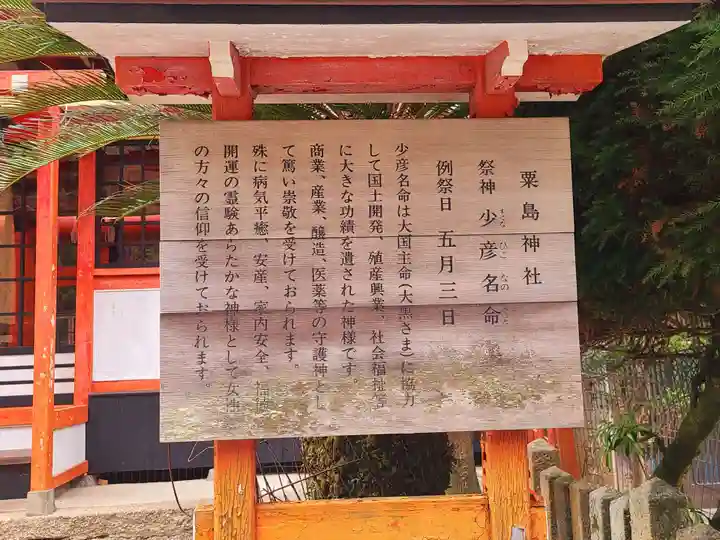 粟島神社
祭神 少彦名命
すくな ひこ なの みこと
例祭日 五月三日
少彦名命は大国主命(大黒さま)に協力
して国土開発、殖産興業、社会福祉等
に大きな功績を遺された神様です。
商業、産業、醸造、医薬等の守護神とし
て篤い崇敬を受けております。
殊に病気平癒、安産、家内安全、福徳
開運の霊験あらたかな神様として女性
の方々の信仰を受けておられます。